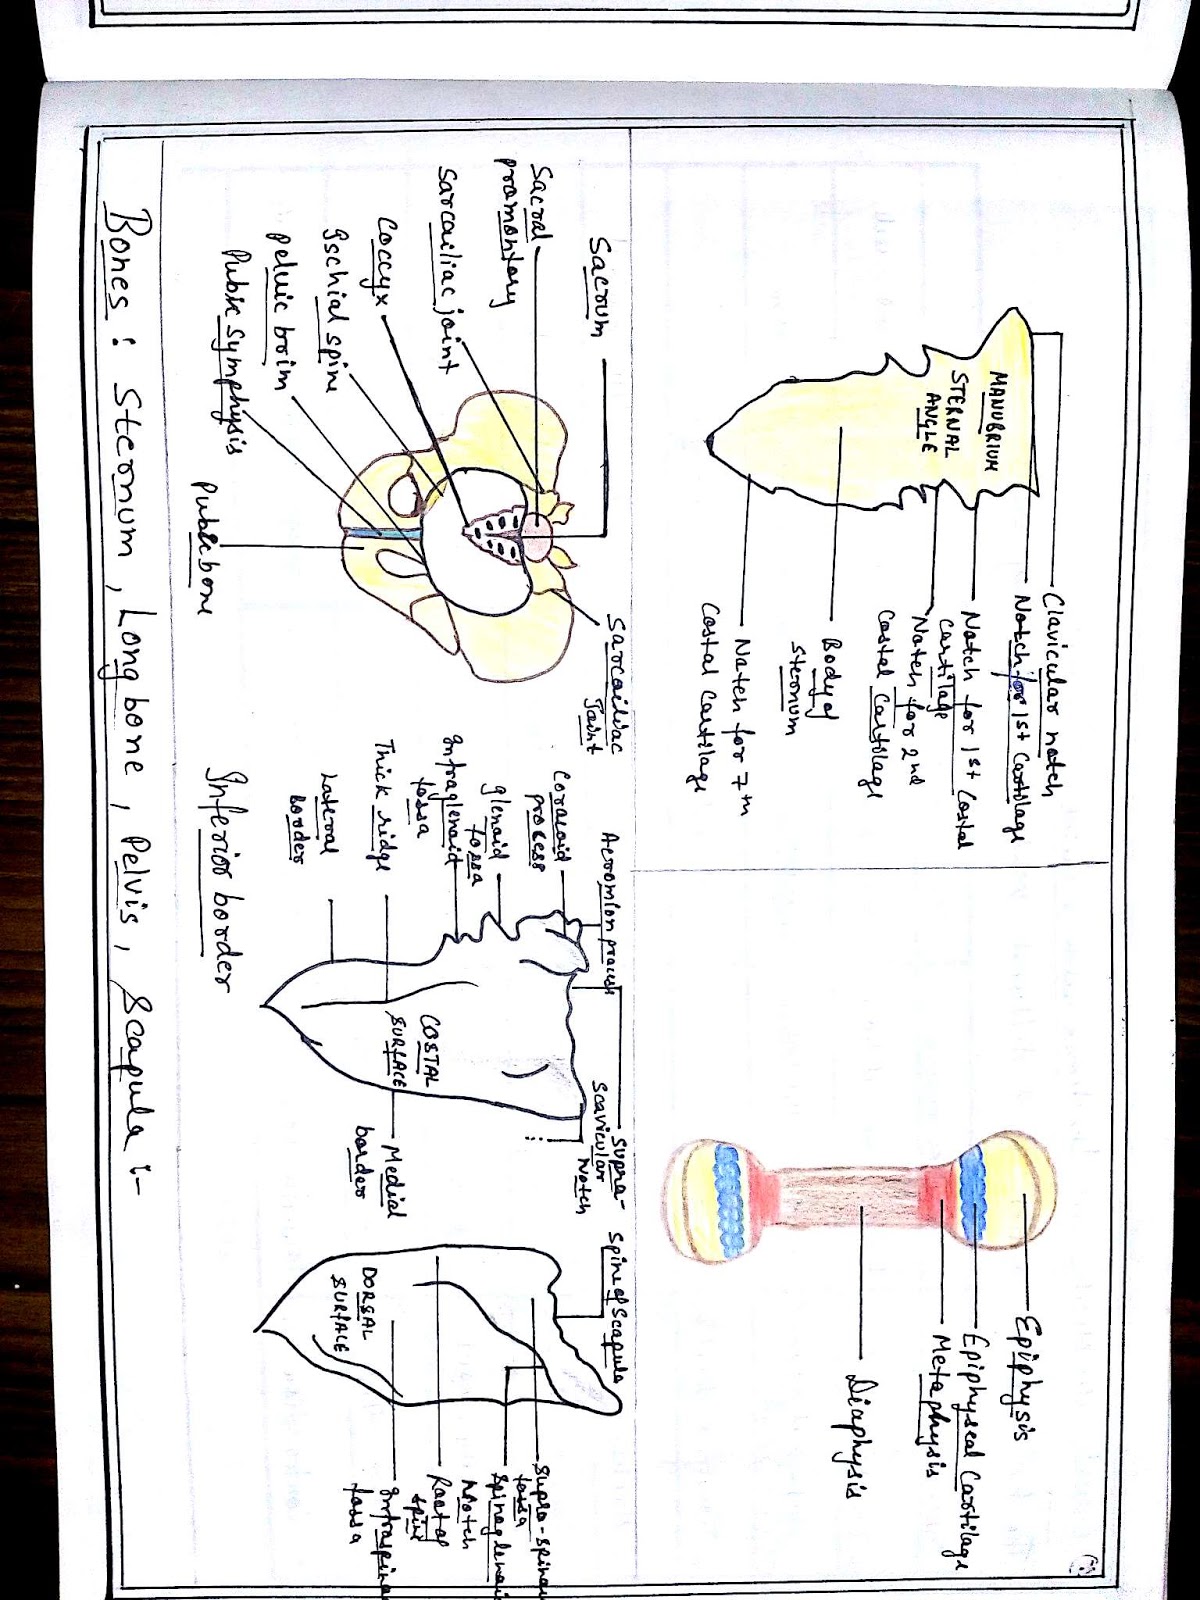 Clavicular notch
Notch for 1st Cartilage
Notch for 1st Costal
Cartilage
Notch for 2nd
Costal Cartilage
Body of
Sternum
Notch for 7th
Costal Cartilage
MANUBRIUM
STERNAL
ANGLE
Epiphysis
Epiphyseal Cartilage
Metaphysis
Diaphysis
Sacrum
Sacral
promontory
Sarcailiac joint
Coccyx
Ischial spine
Pelvic brim
Pubic Symphysis
Pubic bone
Sarcoailiac
Joint
Acromion process
Coracoid
process
glenoid
fossa
Infraglenoid
fossa
Thick ridge
Lateral
Border
Inferior border
COSTAL
SURFACE
Supra-
Scavicular
Notch
Medial
border
Spine of Scapula
DORSAL
SURFACE
Supra-spina
fossa
Spinoglenoi
Notch
Root of
spine
Infraspina
fossa
Bones : Sternum , Long bone , Pelvis , Scapula :-